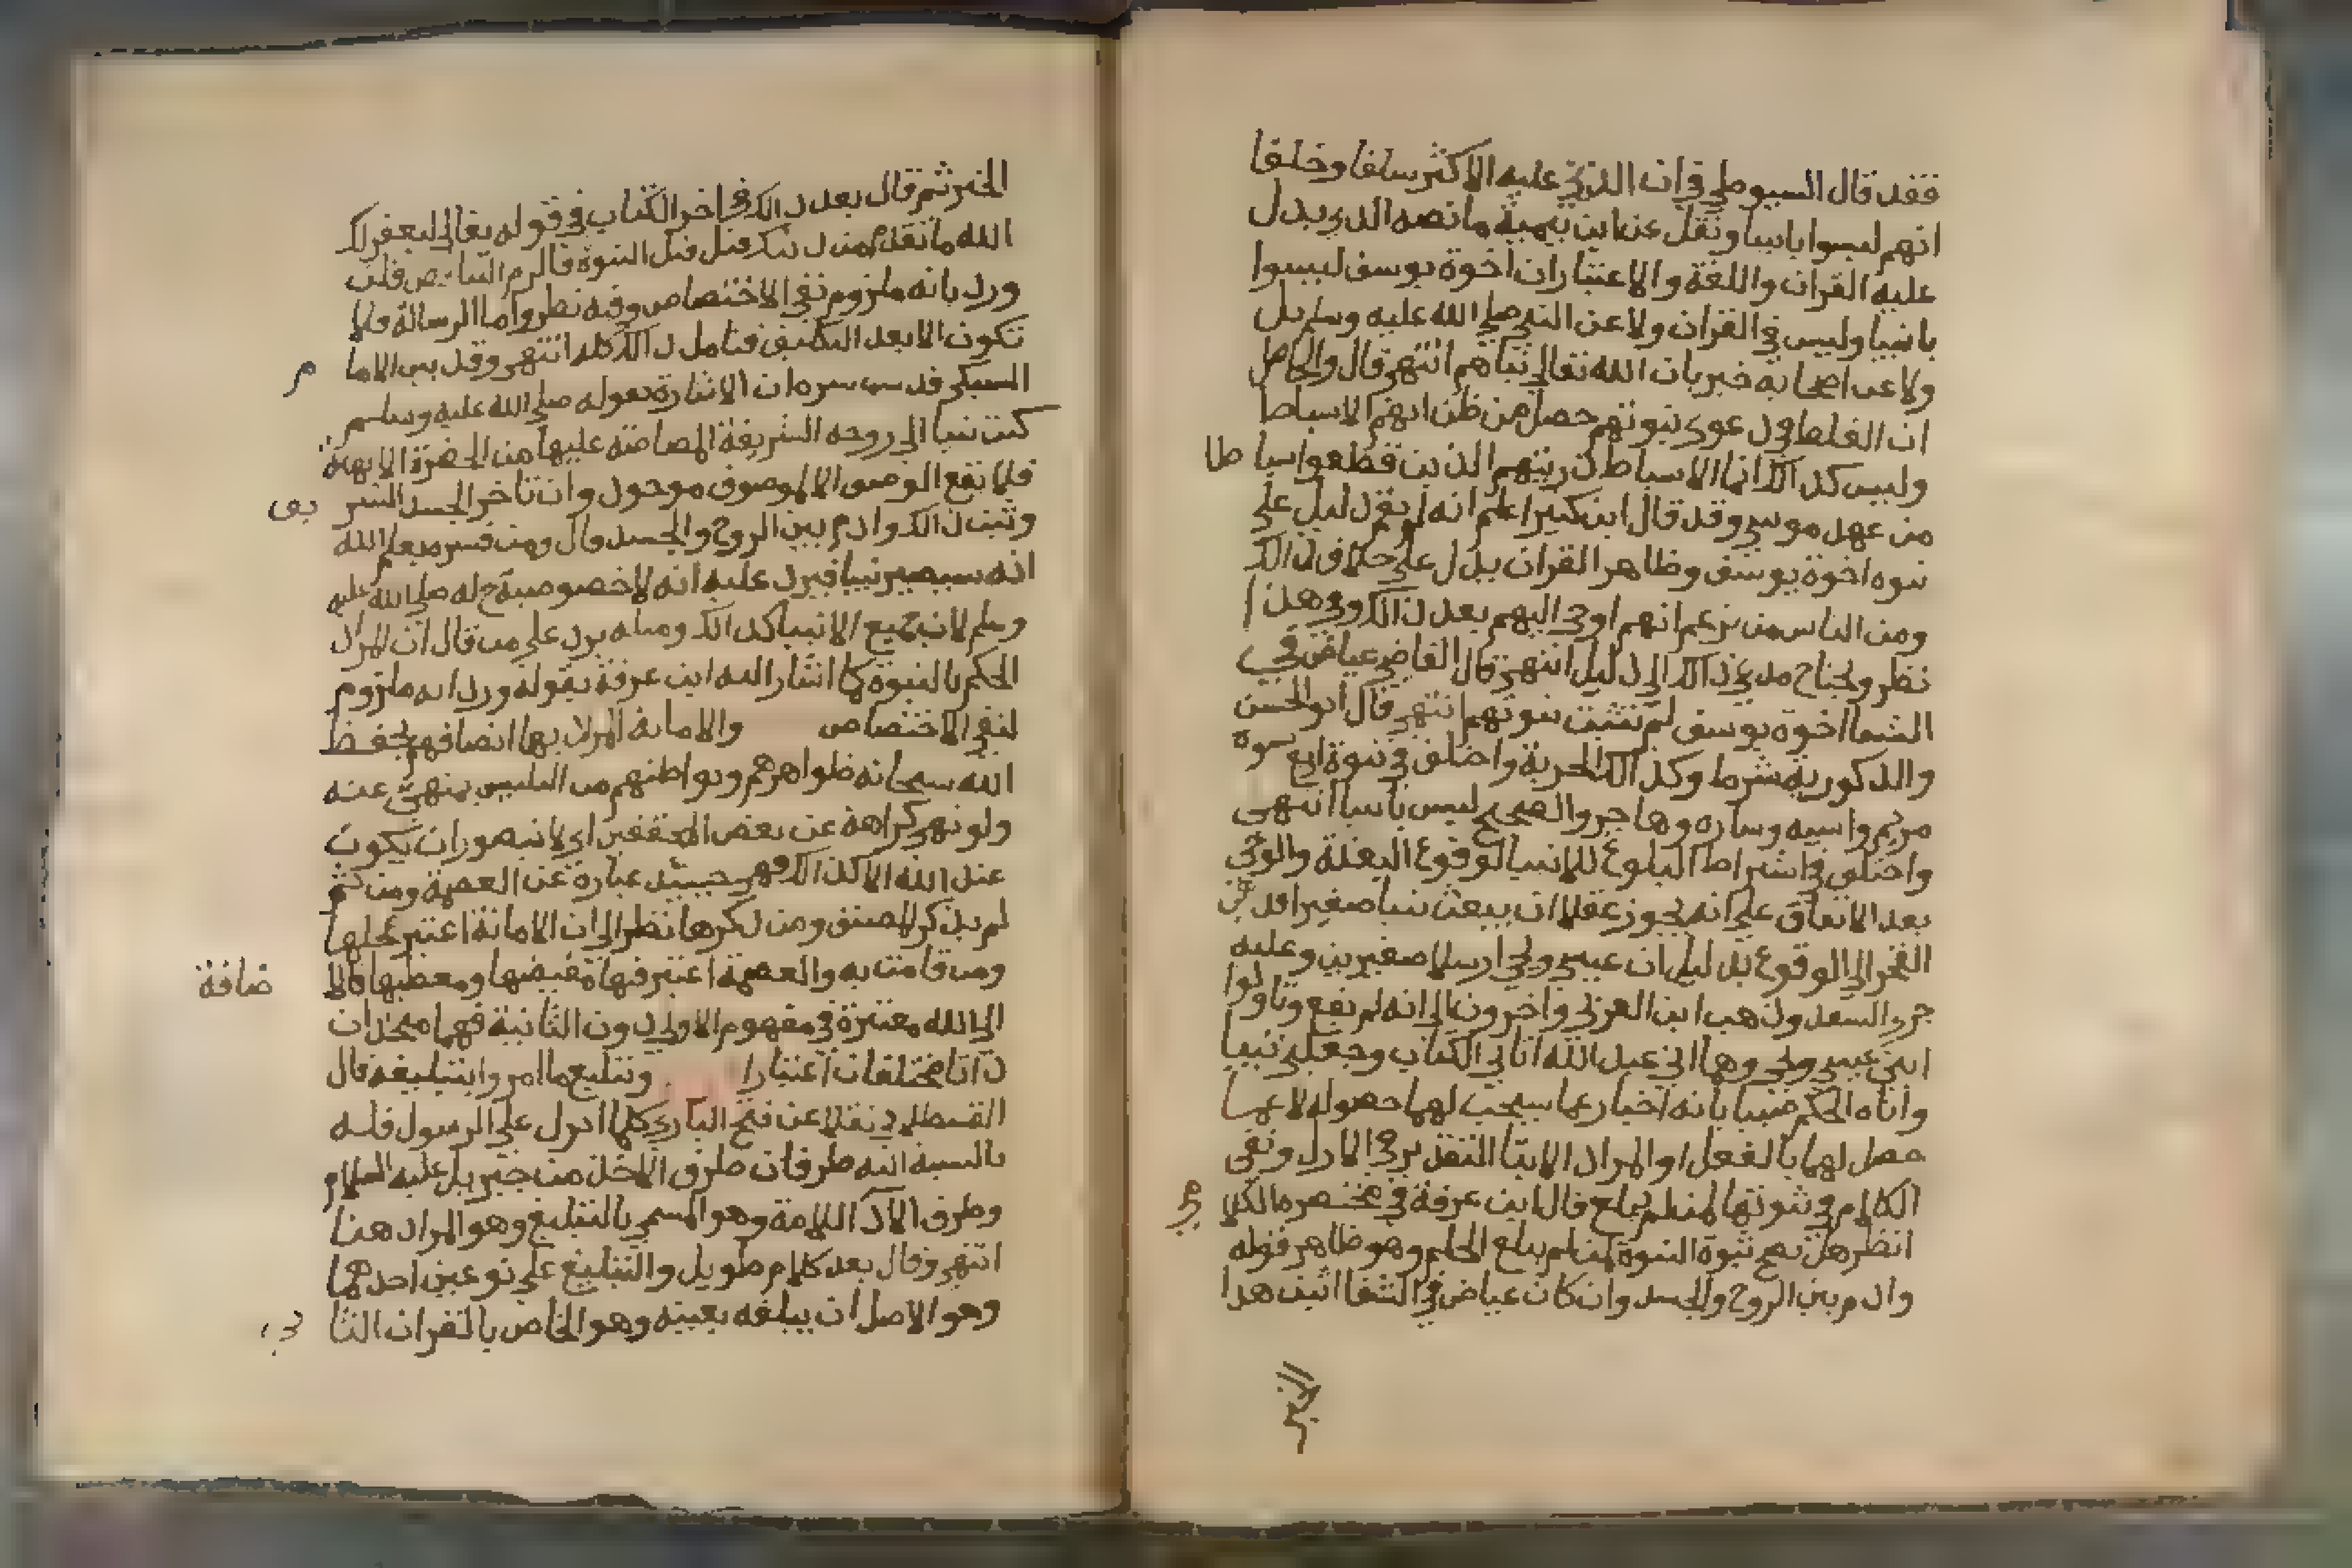 فقد قال السيوطي في ان الذي عليه الاكثر سلفا وخلفا
انهم ليسوا بانبيا ونقل عن ابن تيمية ما نصه الذي يدل
عليه القران واللغة والاعتبار ان اخوة يوسف ليسوا
بانبيا وليس في القران ولا عن النبي صلى الله عليه وسلم بل
ولا عن اصحابه خبر بان الله تعالى نباهم انتهى قال والحاصل
ان الغلط في دعوى نبوتهم حصل من ظن انهم الاسباط
وليس كذلك انما الاسباط ذريتهم الذين قطعوا اسباطا
من عهد موسى وقد قال ابن كثير اعلم انه لم يقم دليل على
نبوه اخوة يوسف وظاهر القران يدل على خلاف ذلك
ومن الناس من يزعم انهم اوحى اليهم بعد ذلك وفي هذا
نظر ويحتاج مدعي ذلك الى دليل انتهى قال القاضي عياض في
الشفا اخوة يوسف لم تثبت نبوتهم انتهى قال ابو الحسن
والذكورية شرط وكذلك الحرية واختلف في نبوة اربع نسوة
مريم واسيه وساره وهاجر والصحيح ليس بانبيا انتهى
واختلف في اشتراط البلوغ للانبيا لوقوع البعثة والوحي
بعد الاتفاق على انه يجوز عقلا ان يبعث نبيا صغيرا فذهب
الفخر الى الوقوع بدليل ان عيسى ويحي ارسلا صغيرين وعليه
جرى السعد وذهب ابن العربي واخرون الى انه لم يقع وتاولوا
ايتي عيسى ويحي وهما اني عبد الله اتاني الكتاب وجعلني نبيا
واتاه الحكم صبيا بانه اخبار عما سيجب لهما حصوله لا عما
حصل لهما بالفعل او المراد الايتا المتقدير في الازل وبقي
الكلام في ثبوتها لمن لم يبلغ قال ابن عرفة في مختصره الكلامي
انظر هل تصح ثبوة النبوة لمن لم يبلغ الحلم وهو ظاهر قوله
وادم بين الروح والجسد وان كان عياض في الشفا اثبت هذا
الخبر ثم قال بعد ذلك في اخر الكتاب في قوله تعالى ليغفر لك
الله ما تقدم من ذنبك قيل قبل النبوة فالزم التناقض قلت
ورد بانه ملزوم نفي الاختصاص وفيه نظر واما الرسالة فلا
تكون الا بعد التكليف فتامل ذلك كله انتهى وقد بين الامام
السبكي قدس سره ان الاشارة بقوله صلى الله عليه وسلم
كنت نبيا الى روحه الشريفة المفاضة عليها من الحضرة الالهية
فلا يقع الوصف الا لموصوف موجود وان تاخر الجسد الشريف
وثبت ذلك وادم بين الروح والجسد قال ومن فسره بعلم الله
انه سيصير نبيا فيرد عليه انه لا خصوصية ح له صلى الله عليه
وسلم لان جميع الانبيا كذلك ومثله يرد على من قال ان المراد
الحكم بالنبوة كما اشار اليه ابن عرفة بقوله ورد بانه ملزوم
لنفي الاختصاص والامانة المراد بها اتصافهم بحفظ
الله سبحانه ظواهرهم وبواطنهم من التلبيس بمنهي عنه
ولو نهي كراهة عن بعض المحققين اي لا يتصور ان يكون
عند الله الا كذلك فهي حينئذ عبارة عن العصمة ومن ثم
لم يذكر المصنف ومن ذكرها نظر الى ان الامانة اعتبر محلها
ومن قامت به والعصمة اعتبر فيها مفيضها ومعطيها فالاضافة
الى الله معتبرة في مفهوم الاولى دون الثانية فهما متحدان
ذاتا مختلفان اعتبارا وتبليغ ما امروا بتبليغه قال
القسطلاني نقلا عن فتح الباري كلما انزل على الرسول فله
بالنسبة اليه طرفان طرف الاخذ من جبريل عليه السلام
وطرف الادا للامة وهو المسمى بالتبليغ وهو المراد هنا
انتهى وقال بعد كلام طويل والتبليغ على نوعين احدهما
وهو الاصل ان يبلغه بعينه وهو الخاص بالقران الثاني